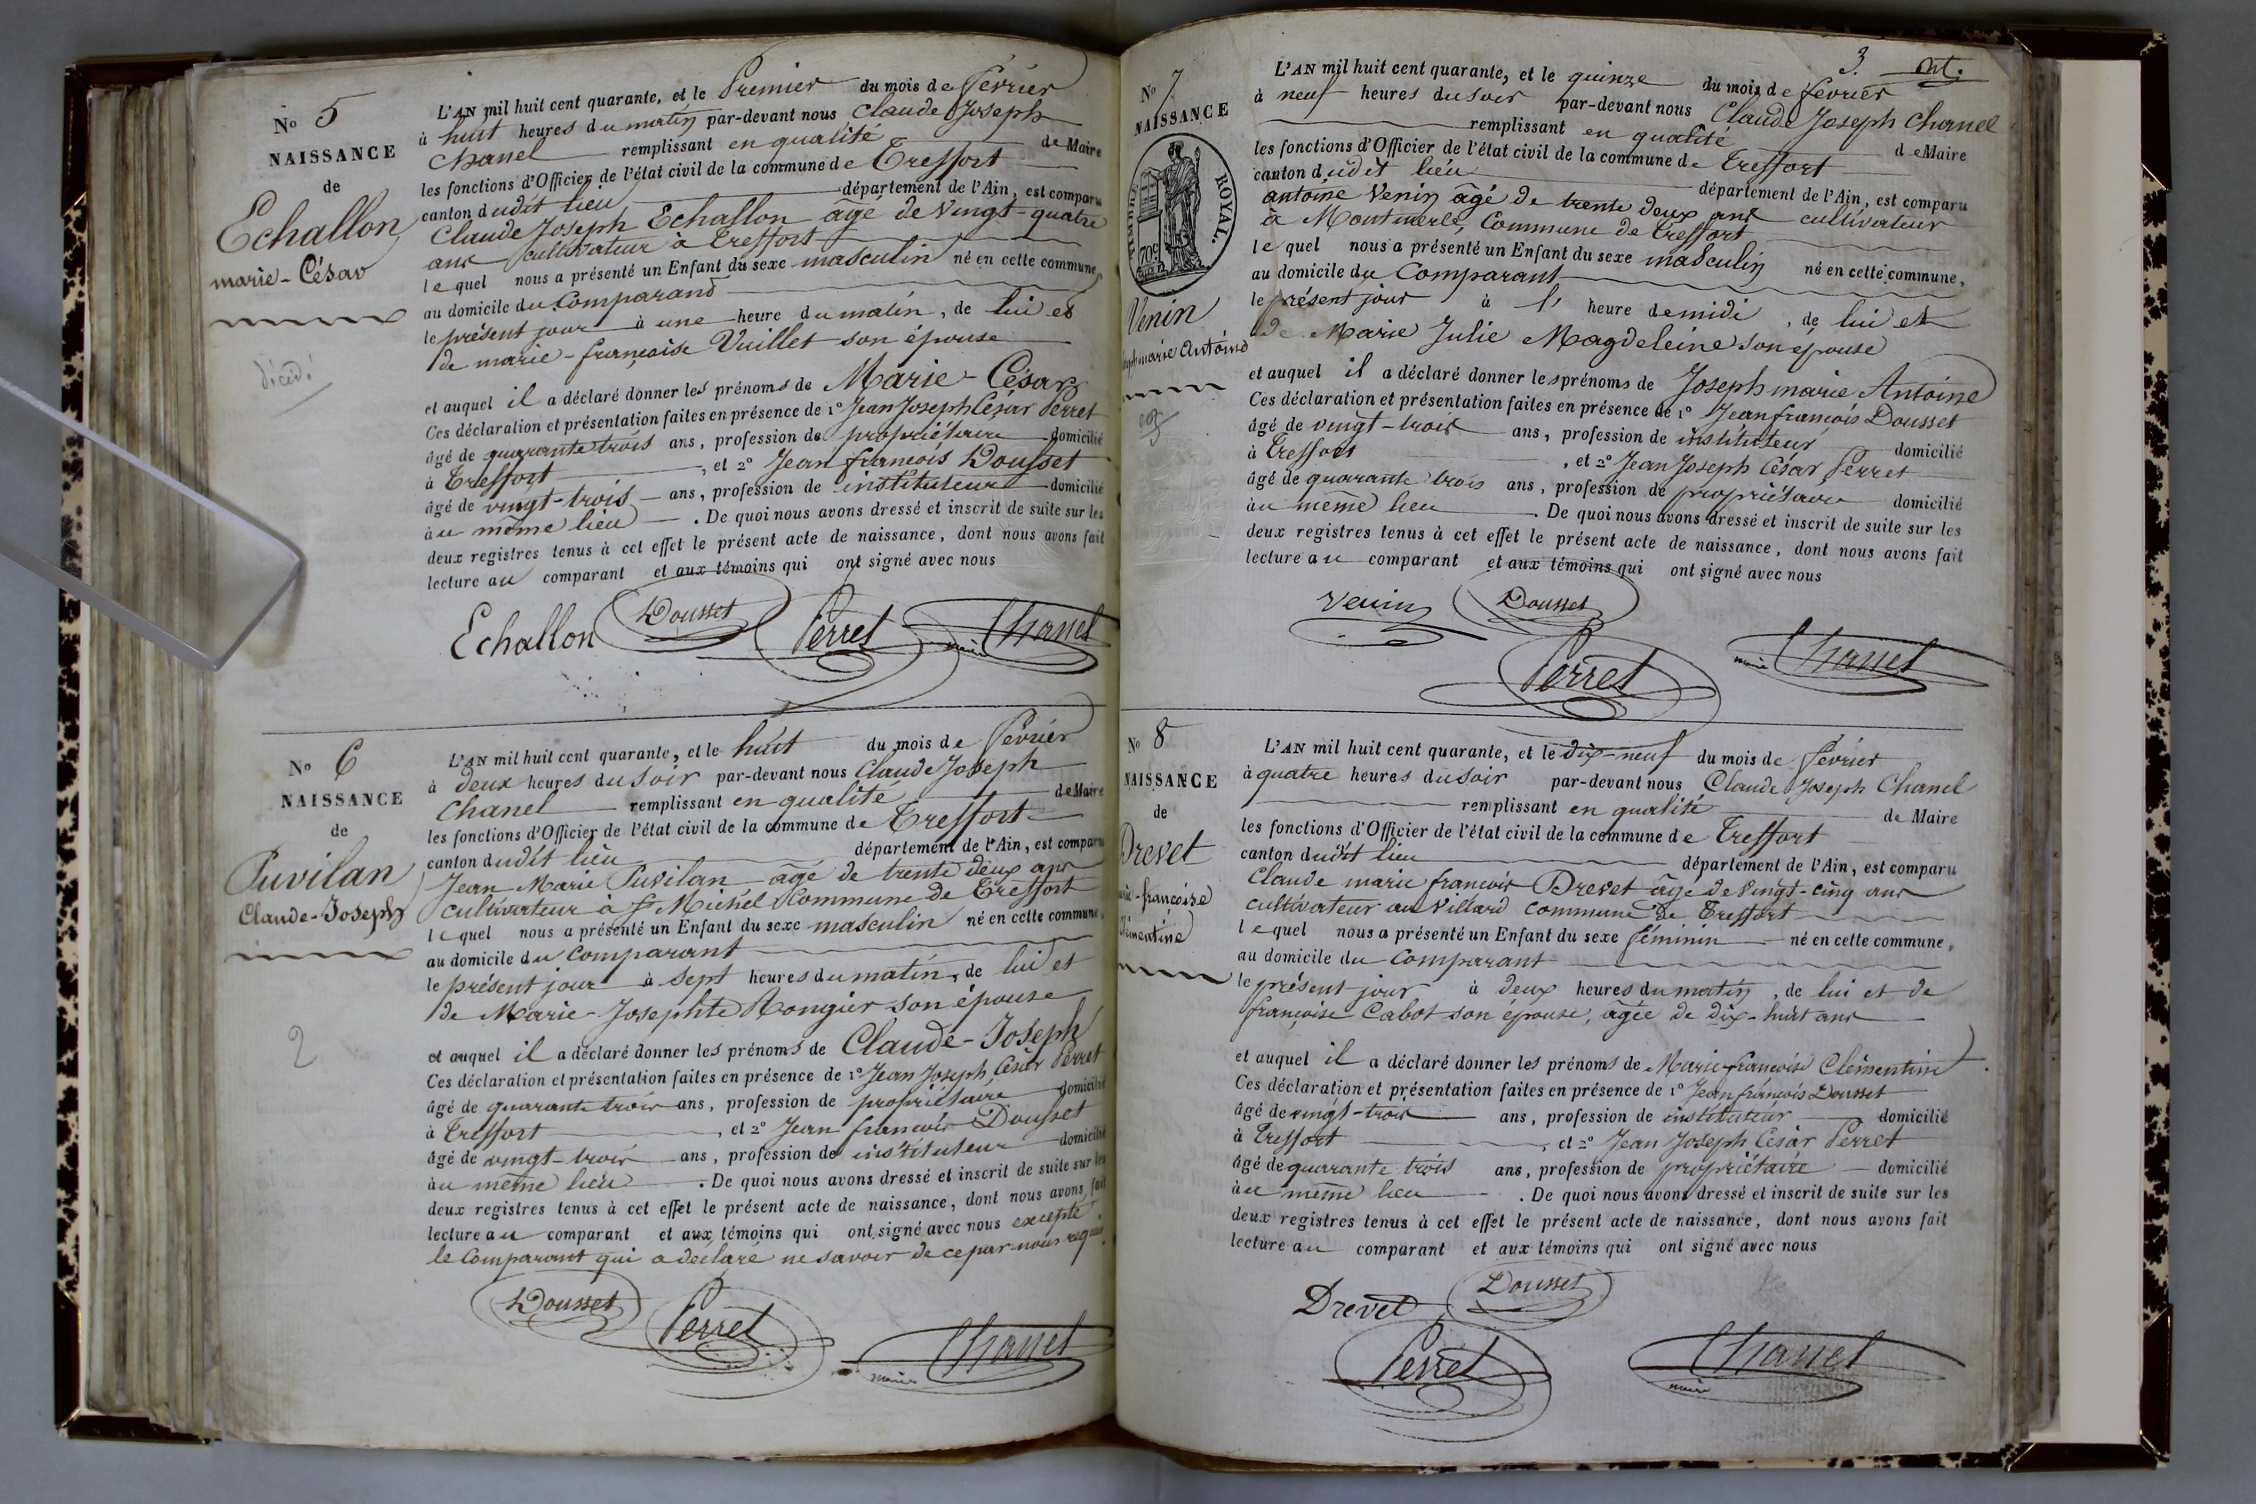 No 5
NAISSANCE
de
Echallon
marie-César
décédé
L'AN mil huit cent quarante, et le Premier du mois de février
à huit heures du matin par-devant nous Claude Joseph
Chanel remplissant en qualité de Maire
les fonctions d'Officier de l'état civil de la commune de Treffort
canton dudit lieu département de l'Ain, est comparu
Claude Joseph Echallon âgé de vingt-quatre
ans cultivateur à Treffort
lequel nous a présenté un Enfant du sexe masculin né en cette commune,
au domicile du Comparant
le présent jour à une heure du matin, de lui et
de marie-françoise Vuillet son épouse
et auquel il a déclaré donner les prénoms de Marie-César
Ces déclaration et présentation faites en présence de 1o Jean Joseph César Perret
âgé de quarante trois ans, profession de propriétaire domicilié
à Treffort, et 2o Jean françois Dousset
âgé de vingt-trois ans, profession de instituteur domicilié
au même lieu. De quoi nous avons dressé et inscrit de suite sur les
deux registres tenus à cet effet le présent acte de naissance, dont nous avons fait
lecture au comparant et aux témoins qui ont signé avec nous
Echallon Dousset Perret maire Chanel
No 6
NAISSANCE
de
Puvilan
Claude-Joseph
2
L'AN mil huit cent quarante, et le huit du mois de février
à deux heures du soir par-devant nous Claude Joseph
Chanel remplissant en qualité de Maire
les fonctions d'Officier de l'état civil de la commune de Treffort
canton dudit lieu département de l'Ain, est comparu
Jean Marie Puvilan âgé de trente deux ans
cultivateur à St Michel Commune de Treffort
lequel nous a présenté un Enfant du sexe masculin né en cette commune,
au domicile du Comparant
le présent jour à sept heures du matin, de lui et
de Marie-Josephte Rongier son épouse
et auquel il a déclaré donner les prénoms de Claude-Joseph
Ces déclaration et présentation faites en présence de 1o Jean Joseph César Perret
âgé de quarante trois ans, profession de propriétaire domicilié
à Treffort, et 2o Jean françois Dousset
âgé de vingt-trois ans, profession de instituteur domicilié
au même lieu. De quoi nous avons dressé et inscrit de suite sur les
deux registres tenus à cet effet le présent acte de naissance, dont nous avons fait
lecture au comparant et aux témoins qui ont signé avec nous excepté
le Comparant qui a déclaré ne savoir de ce par nous requis.
Dousset Perret maire Chanel
3.
No 7
NAISSANCE
ROYAL.
Venin
Joseph marie Antoine
L'AN mil huit cent quarante, et le quinze du mois de février
à neuf heures du soir par-devant nous Claude Joseph Chanel
remplissant en qualité de Maire
les fonctions d'Officier de l'état civil de la commune de Treffort
canton dudit lieu département de l'Ain, est comparu
antoine Venin âgé de trente deux ans cultivateur
à Montmerle, Commune de Treffort
lequel nous a présenté un Enfant du sexe masculin né en cette commune,
au domicile du Comparant
le présent jour à l' heure de midi, de lui et
de Marie Julie Magdeleine son épouse
et auquel il a déclaré donner les prénoms de Joseph marie Antoine
Ces déclaration et présentation faites en présence de 1o Jean françois Dousset
âgé de vingt-trois ans, profession de instituteur domicilié
à Treffort, et 2o Jean Joseph César Perret
âgé de quarante trois ans, profession de propriétaire domicilié
au même lieu. De quoi nous avons dressé et inscrit de suite sur les
deux registres tenus à cet effet le présent acte de naissance, dont nous avons fait
lecture au comparant et aux témoins qui ont signé avec nous
Venin Dousset
Perret maire Chanel
No 8
NAISSANCE
de
Drevet
marie-françoise
Clémentine
L'AN mil huit cent quarante, et le dix-neuf du mois de février
à quatre heures du soir par-devant nous Claude Joseph Chanel
remplissant en qualité de Maire
les fonctions d'Officier de l'état civil de la commune de Treffort
canton dudit lieu département de l'Ain, est comparu
Claude marie françois Drevet âgé de vingt-cinq ans
cultivateur au Villard commune de Treffort
lequel nous a présenté un Enfant du sexe féminin né en cette commune,
au domicile du Comparant
le présent jour à deux heures du matin, de lui et de
françoise Cabot son épouse, âgée de dix-huit ans
et auquel il a déclaré donner les prénoms de Marie françoise Clémentine
Ces déclaration et présentation faites en présence de 1o Jean françois Dousset
âgé de vingt-trois ans, profession de instituteur domicilié
à Treffort, et 2o Jean Joseph César Perret
âgé de quarante trois ans, profession de propriétaire domicilié
au même lieu. De quoi nous avons dressé et inscrit de suite sur les
deux registres tenus à cet effet le présent acte de naissance, dont nous avons fait
lecture au comparant et aux témoins qui ont signé avec nous
Drevet Dousset
Perret maire Chanel